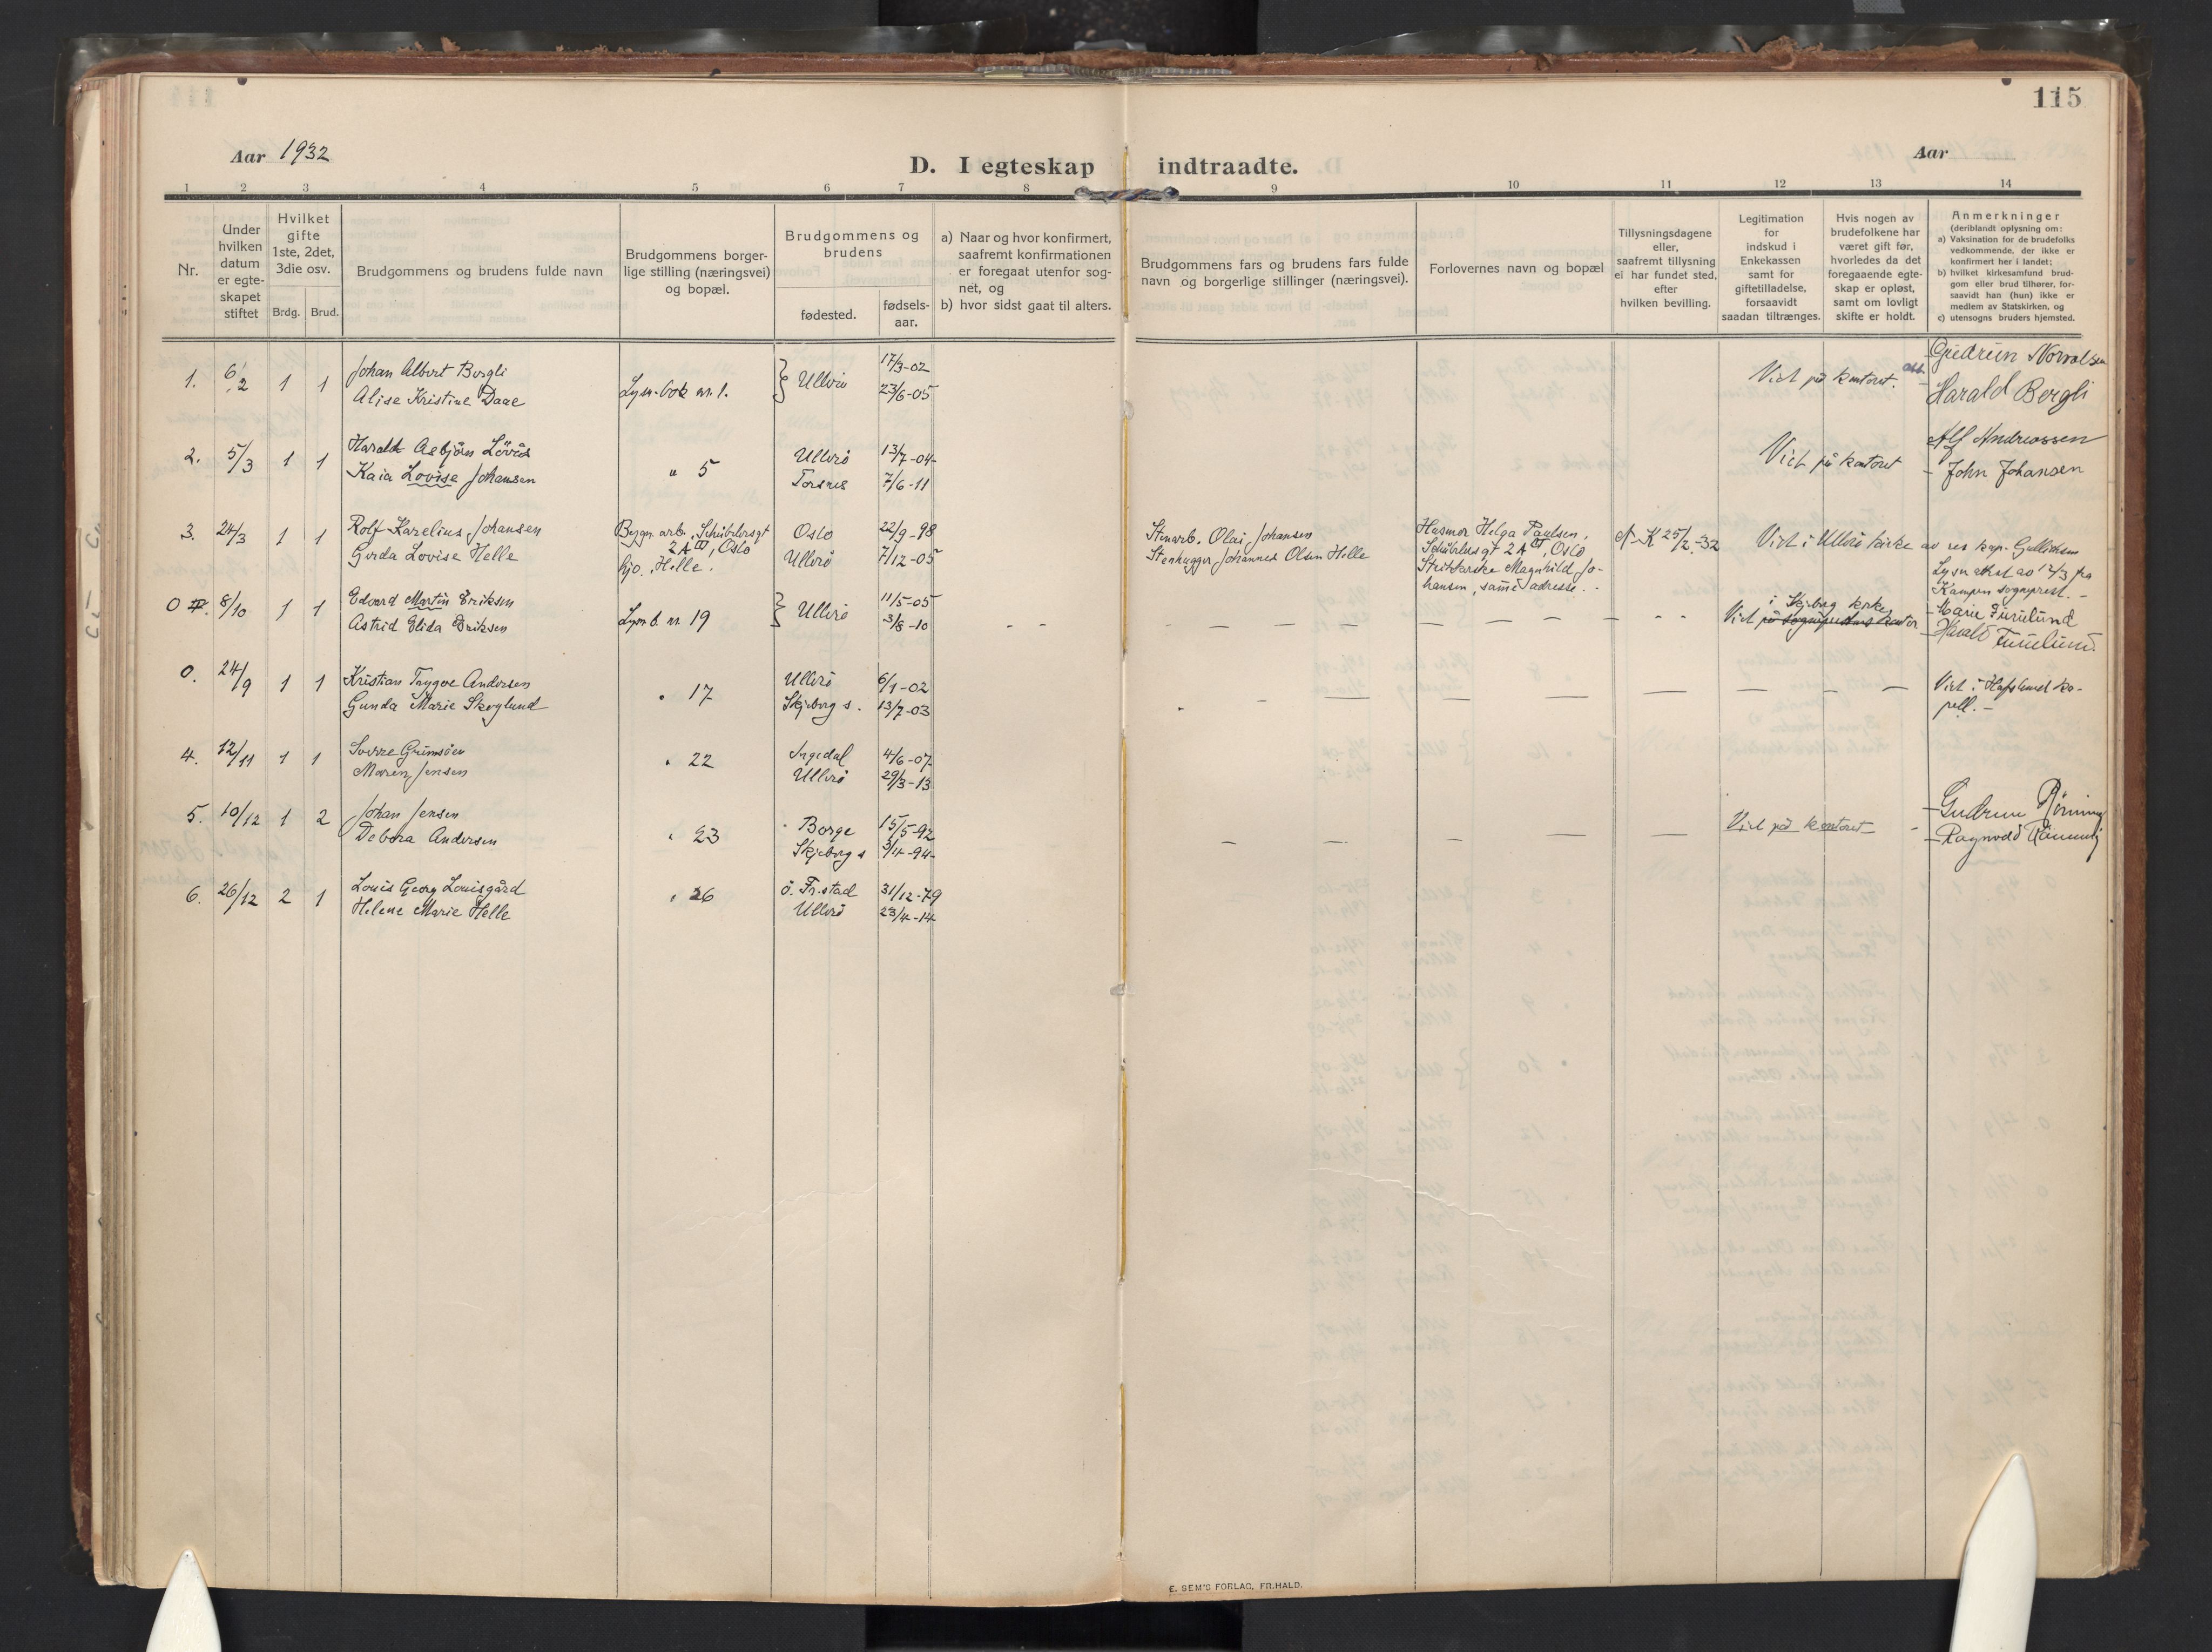 115
Aar 1932
D. I egteskap indtraadte.
Aar
1 2 3 4 5 6 7 8 9 10 11 12 13 14
Nr.
Under
hvilken
datum
er egte-
skapet
stiftet
Hvilket
gifte
1ste, 2det,
3die osv.
Brdg. Brud.
Brudgommens og brudens fulde navn
Brudgommens borger-
lige stilling (næringsvei)
og bopæl.
Brudgommens og
brudens
fødested.
fødsels-
aar.
a) Naar og hvor konfirmert,
saafremt konfirmationen
er foregaat utenfor sog-
net, og
b) hvor sidst gaat til alters.
Brudgommens fars og brudens fars fulde
navn og borgerlige stillinger (næringsvei).
Forlovernes navn og bopæl
Tillysningsdagene
eller,
saafremt tillysning
ei har fundet sted,
efter
hvilken bevilling.
Legitimation
for
indskud i
Enkekassen
samt for
giftetilladelse,
forsaavidt
saadan tiltrænges.
Hvis nogen av
brudefolkene har
været gift før,
hvorledes da det
foregaaende egte-
skap er opløst,
samt om lovligt
skifte er holdt.
Anmerkninger
(deriblandt oplysning om:
a) Vaksination for de brudefolks
vedkommende, der ikke er
konfirmert her i landet;
b) hvilket kirkesamfund brud-
gom eller brud tilhører, for-
saavidt han (hun) ikke er
medlem av Statskirken, og
c) utensogns bruders hjemsted.
1. 6/2 1 1 Johan Albert Bergli Lysn.-bok nr. 1. } Ullerö 17/3-02 Vict på kontoret.
Alise Kristine Daae 23/6-05 Harald Bergli
2. 5/3 1 1 Harald Asbjörn " 5 Ullerö 13/7-04 Vict på kontoret Alf Andreassen
Kaia Lovise Johansen Torsnes 7/6-11 - John Johansen
3. 24/3 1 1 Rolf Karelius Johansen Bygn. arb., Schüblersgt Oslo 22/9-98 Stenarb. Olai Johansen Husmor Helga Paulsen, K 25/2-32 Vict i Ullerö kirke av res. kap. Gulliksen
Gerda Lovise Helle 2A III, Oslo Ullerö 7/12-05 Stenhugger Johannes Olsen Helle Schüblersgt 2A III, Oslo Lysn. attest av 12/3 fra
Kjo., Helle. Magnhild Jo- Kampen sogneprest. -
hansen, samme adresse.
0 8/10 1 1 Edvard Martin Eriksen Lysn. b. nr. 19 } Ullerö 11/5-05 Vict i Skjeberg kirke - Marie Furulund
Astrid Elida Eriksen 3/8-10 på sogneprestens kontor - Harald Furulund.
0. 24/9 1 1 Kristian Trygve Andersen " 17 Ullerö 6/1-02 Vict i Hafslund ka-
Gunda Marie Skoglund Skjeberg s. 13/7-03 pell. -
4. 12/11 1 1 Sverre Grimsöen " 22 Ingedal 4/6-07
Maren Jensen Ullerö 29/3-13
5. 10/12 1 2 Johan Jensen " 23 Borge 15/5-92 Vict på kontoret - Gudrun
Debora Andersen Skjeberg s 3/4-94
6. 26/12 2 1 Louis Georg Louisgård " 26 ö. Fr.stad 31/12-79
Helene Marie Helle Ullerö 23/4-14
E. SEM'S FORLAG, FR.HALD.